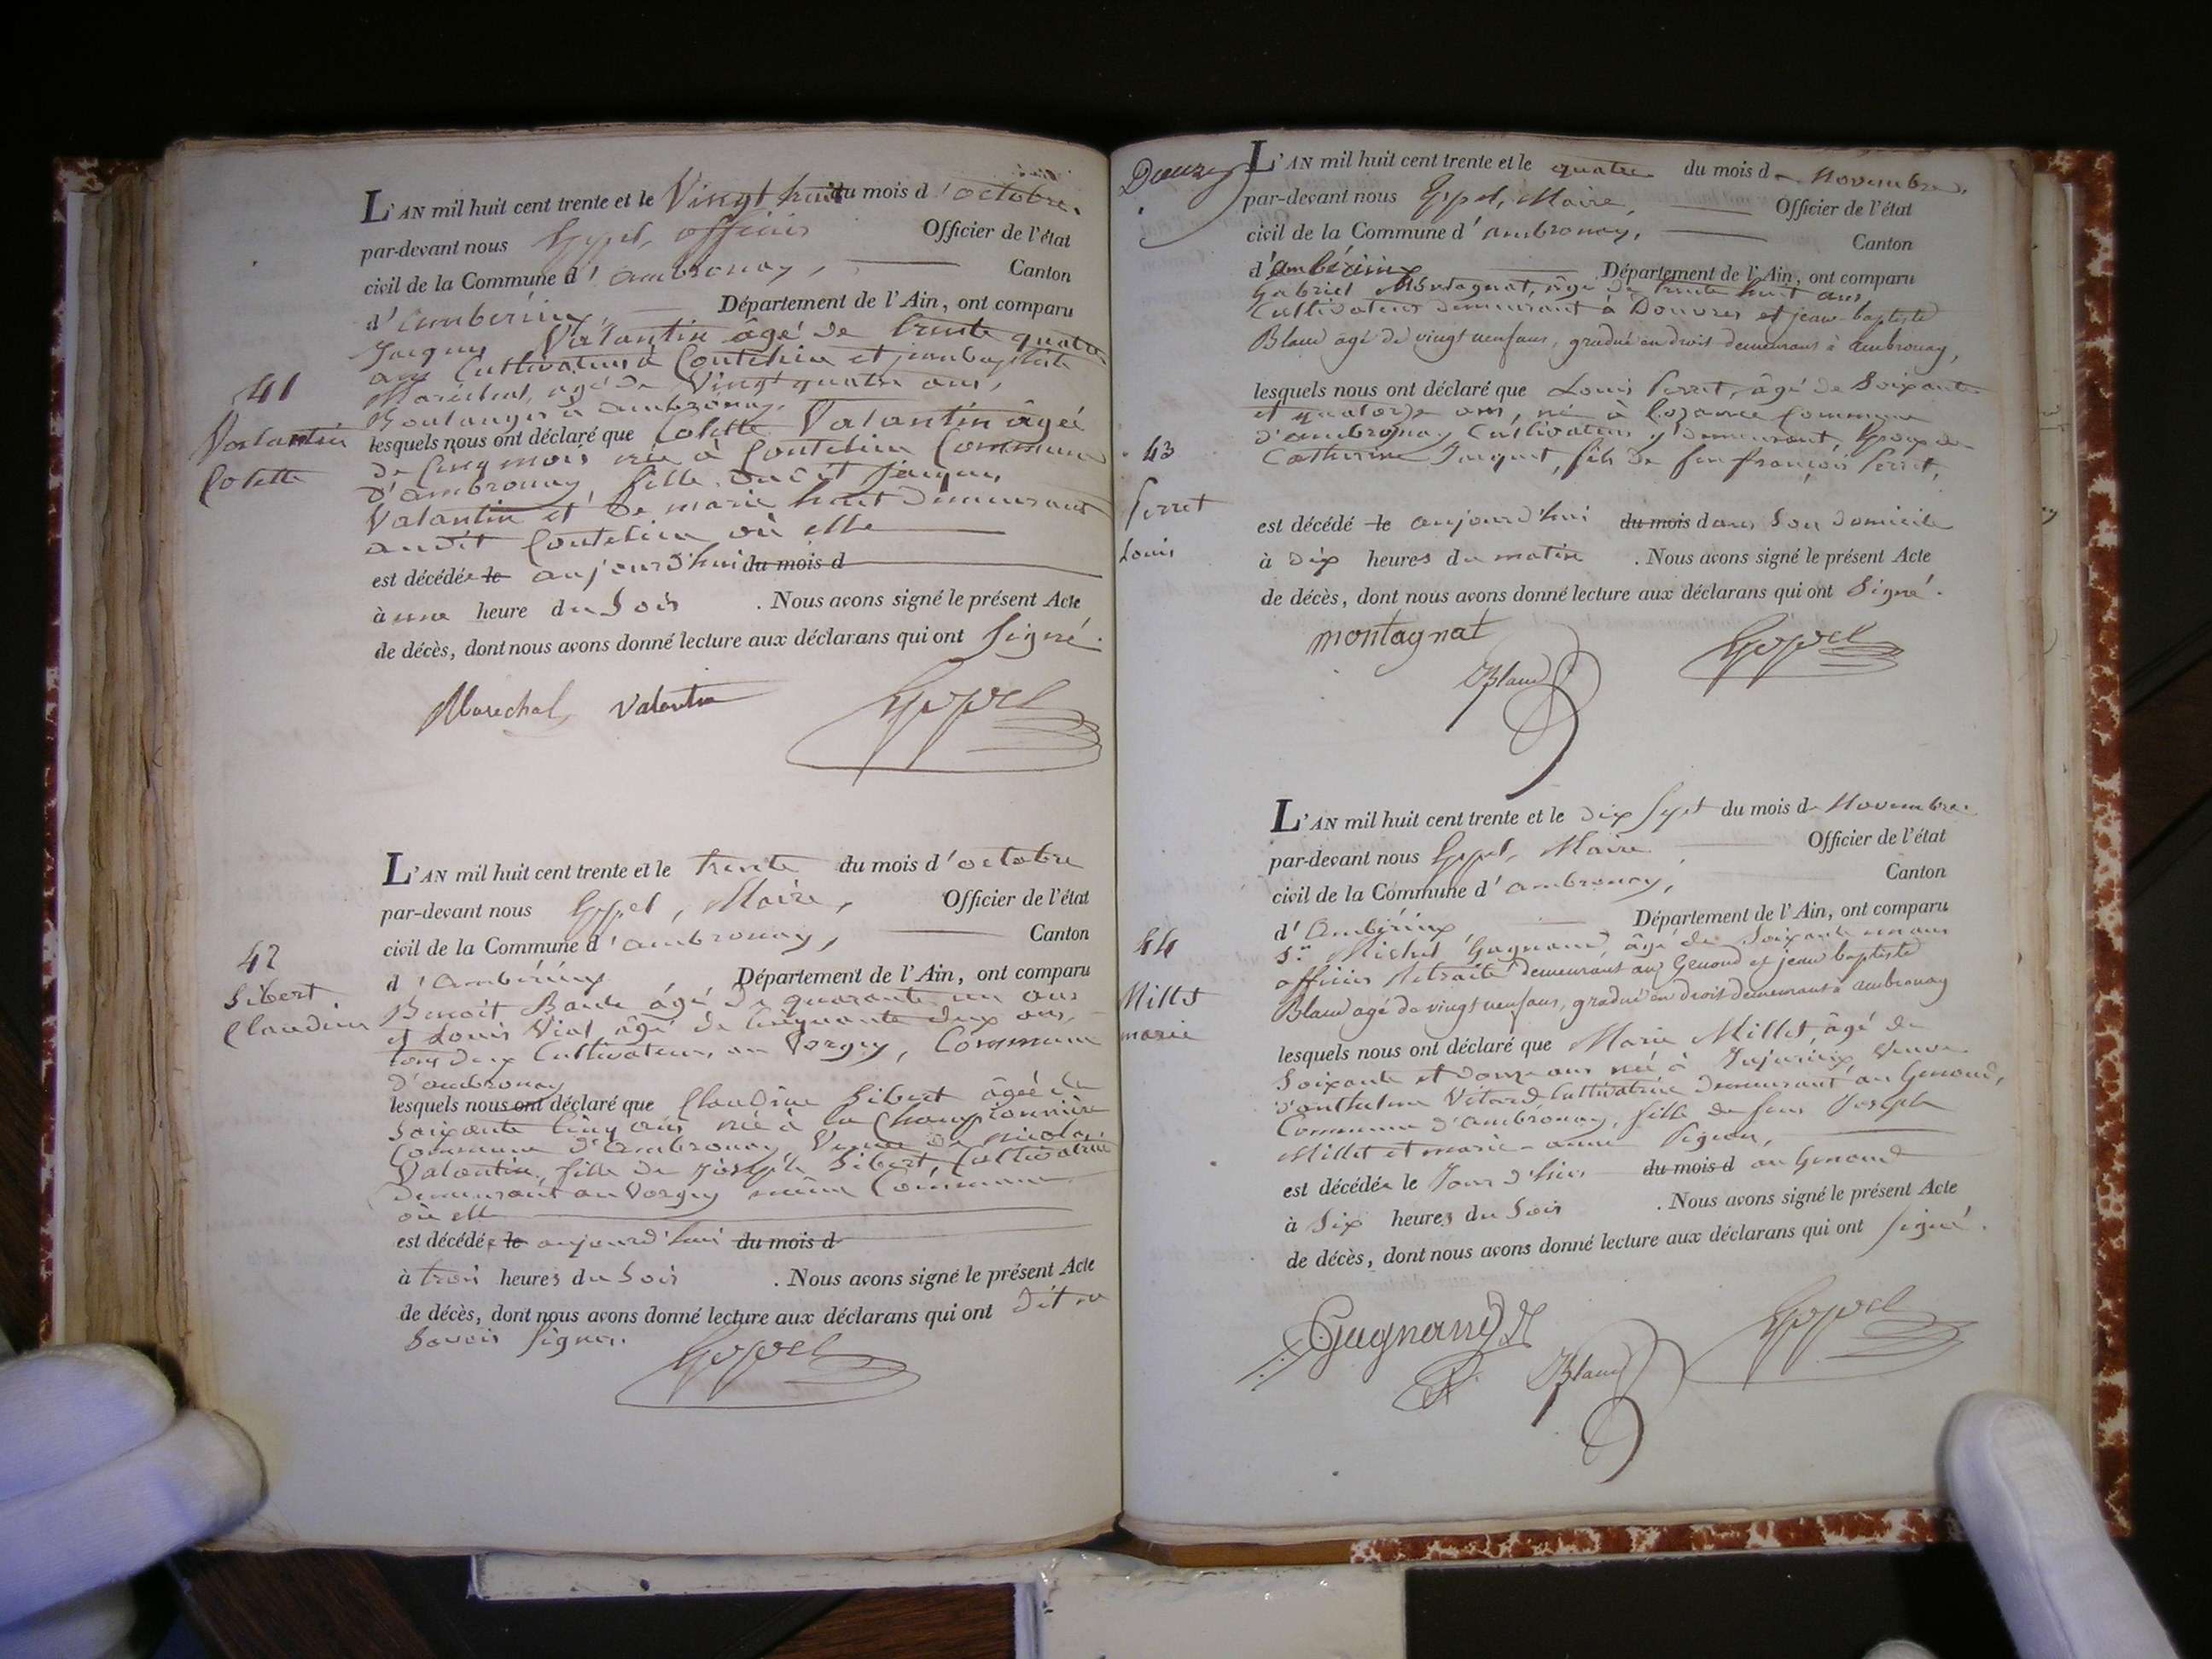 L'AN mil huit cent trente et le Vingt huit du mois d'octobre.
par-devant nous Officier de l'état
civil de la Commune d'ambronay, Canton
d'ambérieux, Département de l'Ain, ont comparu
Jacques Valantin âgé de trente quatre
ans Cultivateur à Coutelieu et jean baptiste
Maréchal, agé de Vingt quatre ans,
Boulanger à ambronay,
41
Valantin
Colette
lesquels nous ont déclaré que Colette Valantin âgée
de Cinq mois née à Coutelieu Commune
d'ambronay, fille dudit Jacques
Valantin et de marie demeurant
audit Coutelieu où elle
est décédée le aujourd'hui du mois d
à une heure du Soir . Nous avons signé le présent Acte
de décès, dont nous avons donné lecture aux déclarans qui ont Signé.
Marechal Valantin
L'AN mil huit cent trente et le trente du mois d'octobre
par-devant nous Maire, Officier de l'état
civil de la Commune d'ambronay, Canton
d'Ambérieux Département de l'Ain, ont comparu
42
Sibert
Claudine
Benoit Bande âgé de quarante un ans
et Louis Vial âgé de Cinquante deux ans,
tous deux Cultivateurs, au Vorgey, Commune
d'ambronay
lesquels nous ont déclaré que Claudine Sibert âgée de
Soixante Cinq ans née à la Championnière
Commune d'Ambronay, Veuve de nicolas
Valantin, fille de Joseph Sibert, Cultivatrice
Demeurant au Vorgey même Commune
où elle
est décédée le aujourd'hui du mois d
à trois heures du Soir . Nous avons signé le présent Acte
de décès, dont nous avons donné lecture aux déclarans qui ont dit ne
Savoir Signer.
L'AN mil huit cent trente et le quatre du mois de Novembre,
par-devant nous Maire, Officier de l'état
civil de la Commune d'ambronay, Canton
d'ambérieux Département de l'Ain, ont comparu
Gabriel Montagnat, âgé de trente huit ans
Cultivateur demeurant à Douvres et jean-baptiste
Blanc agé de vingt neuf ans, gradué en droit demeurant à ambronay,
lesquels nous ont déclaré que Louis Perret, âgé de Soixante
et quatorze ans, né à Cozance Commune
d'ambronay Cultivateur y demeurant, Epoux de
Catherine Jacquet, fils de feu françois Perret,
43
Perret
Louis
est décédé le aujourd'hui du mois dans Son domicile
à dix heures du matin . Nous avons signé le présent Acte
de décès, dont nous avons donné lecture aux déclarans qui ont Signé.
montagnat
Blanc
L'AN mil huit cent trente et le dix Sept du mois de Novembre
par-devant nous Maire Officier de l'état
civil de la Commune d'ambronay, Canton
d'Ambérieux Département de l'Ain, ont comparu
44
Millet
marie
Sr. Michel Gagnand, âgé de Soixante un ans
officier Retraité demeurant au Genoud et jean baptiste
Blanc agé de vingt neuf ans, gradué en droit demeurant à ambronay
lesquels nous ont déclaré que Marie Millet, âgé de
Soixante et douze ans née à Jujurieux Veuve
d'anthelme Vitard Cultivatrice demeurant au Genoud,
Commune d'Ambronay, fille de feu Joseph
Millet et marie-anne Pignon,
est décédée le Jour d'hier du mois d au Genoud
à Six heures du Soir . Nous avons signé le présent Acte
de décès, dont nous avons donné lecture aux déclarans qui ont Signé.
Gagnand
Blanc